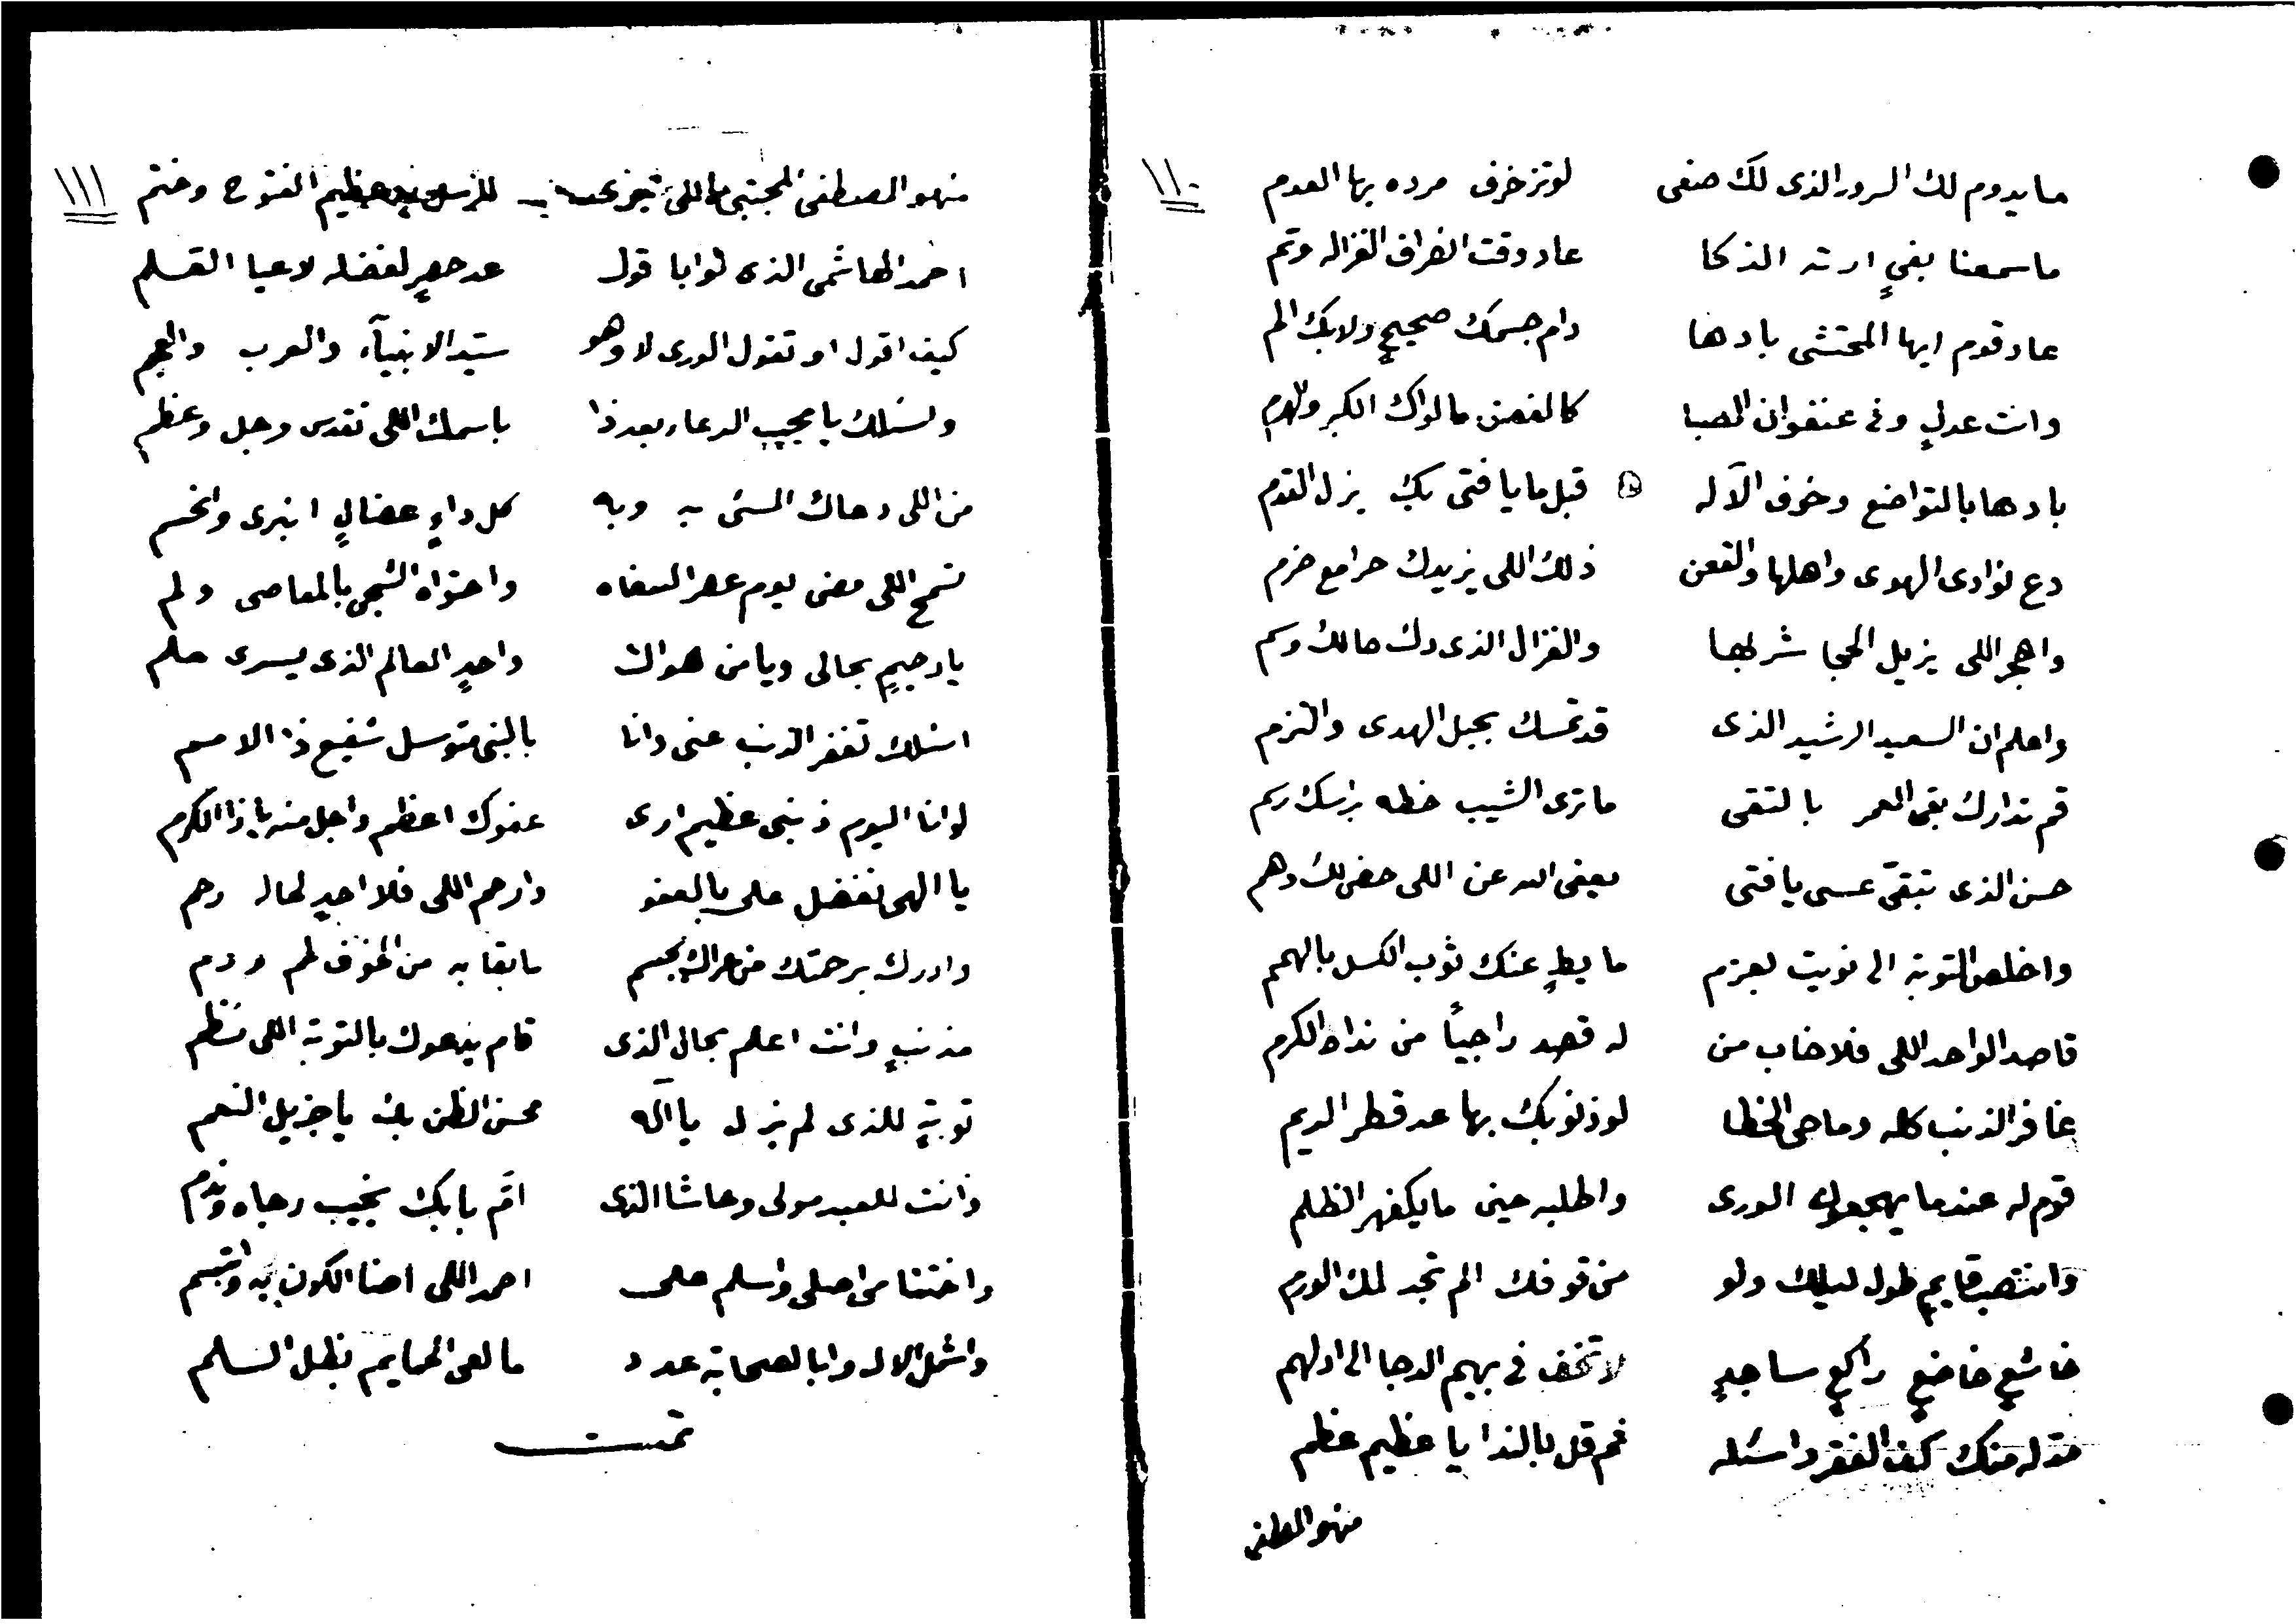 ١١٠
ما يدوم لك السرور الذى لك صفى لو تزخرف مرده بها العدم
ما سمعنا بفيٍ ارته الذكا عاد وقت انصراف الغزاله وتم
عاد قوم ايها المحتشى بادها دام جسمك صحيحٍ ولابك الم
وانت عدلٍ وفى عنفوان الصبا كالغصن ما لواك الكبر والهرم
بادها بالتواضع وخوف الآله قبل ما يا فتى بك يزل القدم
دع نوادى الهوى واهلها والتعن ذلك اللى يزيدك حرامع خرم
واهجر اللى يزيل الحجا شربها والغزال الذى دك حالك وسم
واعلم ان السعيد الرشيد الذى قد تمسك بحبل الهدى والتزم
قم تدارك بقى العمر بالتقى ما ترى الشيب خطه براسك رسم
حسن الذى تبقى عسى يا فتى يعفى الله عن اللى مضى لك وهم
واخلص التوبة الى نويت بعزم ما يطٍ عنك ثوب الكسل بالهمم
قاصد الواحد اللى فلا خاب من له قصد راجيأ من نداه الكرم
غافر الذنب كله وماحى الخطا لو ذنوبك بها عد قطر الديم
قوم له عندما يهجعون الورى واطلبه حين ما يكفهر الظلم
وانتصب قايمٍ طول ليلك ولو من وقوفك الم تجد لك الورم
خاشعٍ خاضعٍ راكعٍ ساجدٍ لا تخف فى بهيم الدجا الى ادلهم
مد له منك كف الفقر واسئله ثم قل بالندا يا عظيم عظم
منهو المصطفى
١١١
منهو المصطفى المجتبى للرسل عظيم الفتوح وختم
احمد الهاشمى الذى لو ابا قول عد حصرٍ لفضله لاعيا القلم
كيف اقول او تقول الورى لا وهو سيّد الانبيآء والعرب والعجم
ونسئلك يا مجيب الدعا بعد ذا باسمك اللى تقدس وجل وعظم
من اللى دعاك المسئى به وبه كل داءٍ عضالٍ انبرى وانحسم
تسمح اللى مضى يوم عصر السفاه واحتواه الشجى بالمعاصى ولم
يا رحيمٍ بحالى ويا من هو الك واحدٍ العالم الذى يسرى علم
اسئلك تغفر الذنب عنى وانا بالنبى متوسل شفيع ذا الامم
لو انا اليوم ذنبى عظيم ارى عفوك اعظم واجل منه يا ذا الكرم
يا الهى تفضل على بالعفو وارحم اللى فلا احدٍ لحاله رحم
وادرك برحمتك من عراك بجسم ما بقا به من الخوف لحم ودم
مذنبٍ وانت اعلم بحال الذى قام يدعوك بالتوبة اللى نظم
توبةٍ للذى لم يزل يا آله محسن الظن بك يا جزيل النعم
وانت للعبد مولى وحاشا الذى امّ بابك يخيب رجاه وندم
واختتامى اصلى واسلم على احمد اللى اضا الكون به وابتسم
واشمل الال وابا لصحابة عدد ما لعى الحمايم بظل السلم
تمت